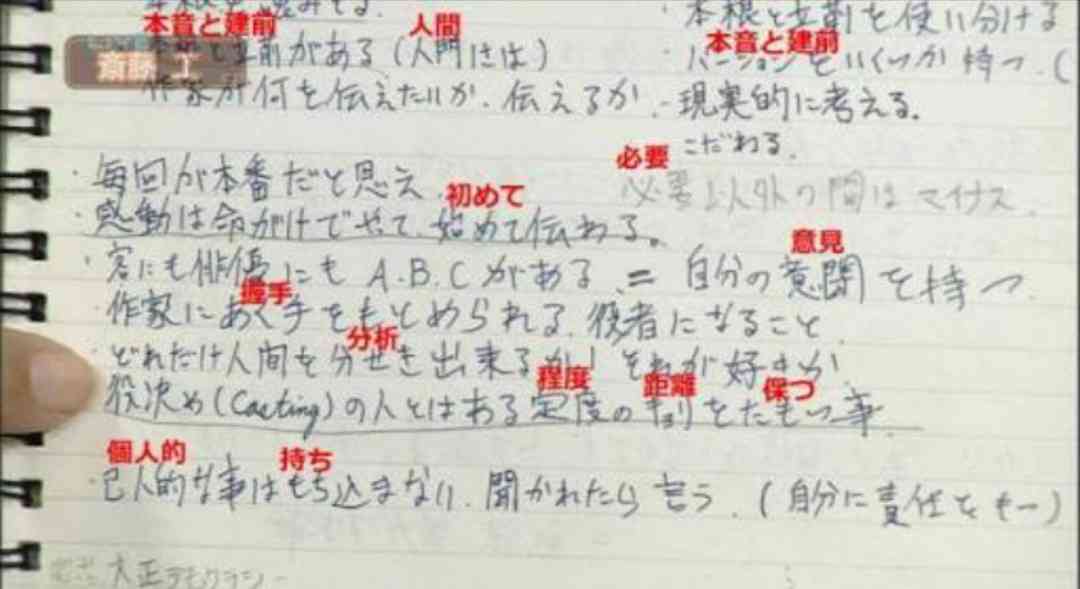 本音と建前 人間
・本根と立前を使い分ける
斎藤 工
立前がある(人門には)
本音と建前
・バージョンをいくつか持つ。(
作家が何を伝えたいか、伝えるか
・現実的に考える。
必要 こだわる。
・毎回が本番だと思え
必要以外の間はマイナス。
初めて
・感動は命がけでやって、始めて伝わる。
意見
・客にも俳優にもA.B.Cがある = 自分の意聞を持つ
握手
・作家にあく手をもとめられる、役者になること
分析
・どれだけ人間を分せき出来るか! それが好きか
程度 距離 保つ
・役決め(Casting)の人とはある定度の をたもつ事
個人的 持ち
・己人的な事はもち込まない。聞かれたら言う。(自分に責任をもつ)
大正デモクラシー